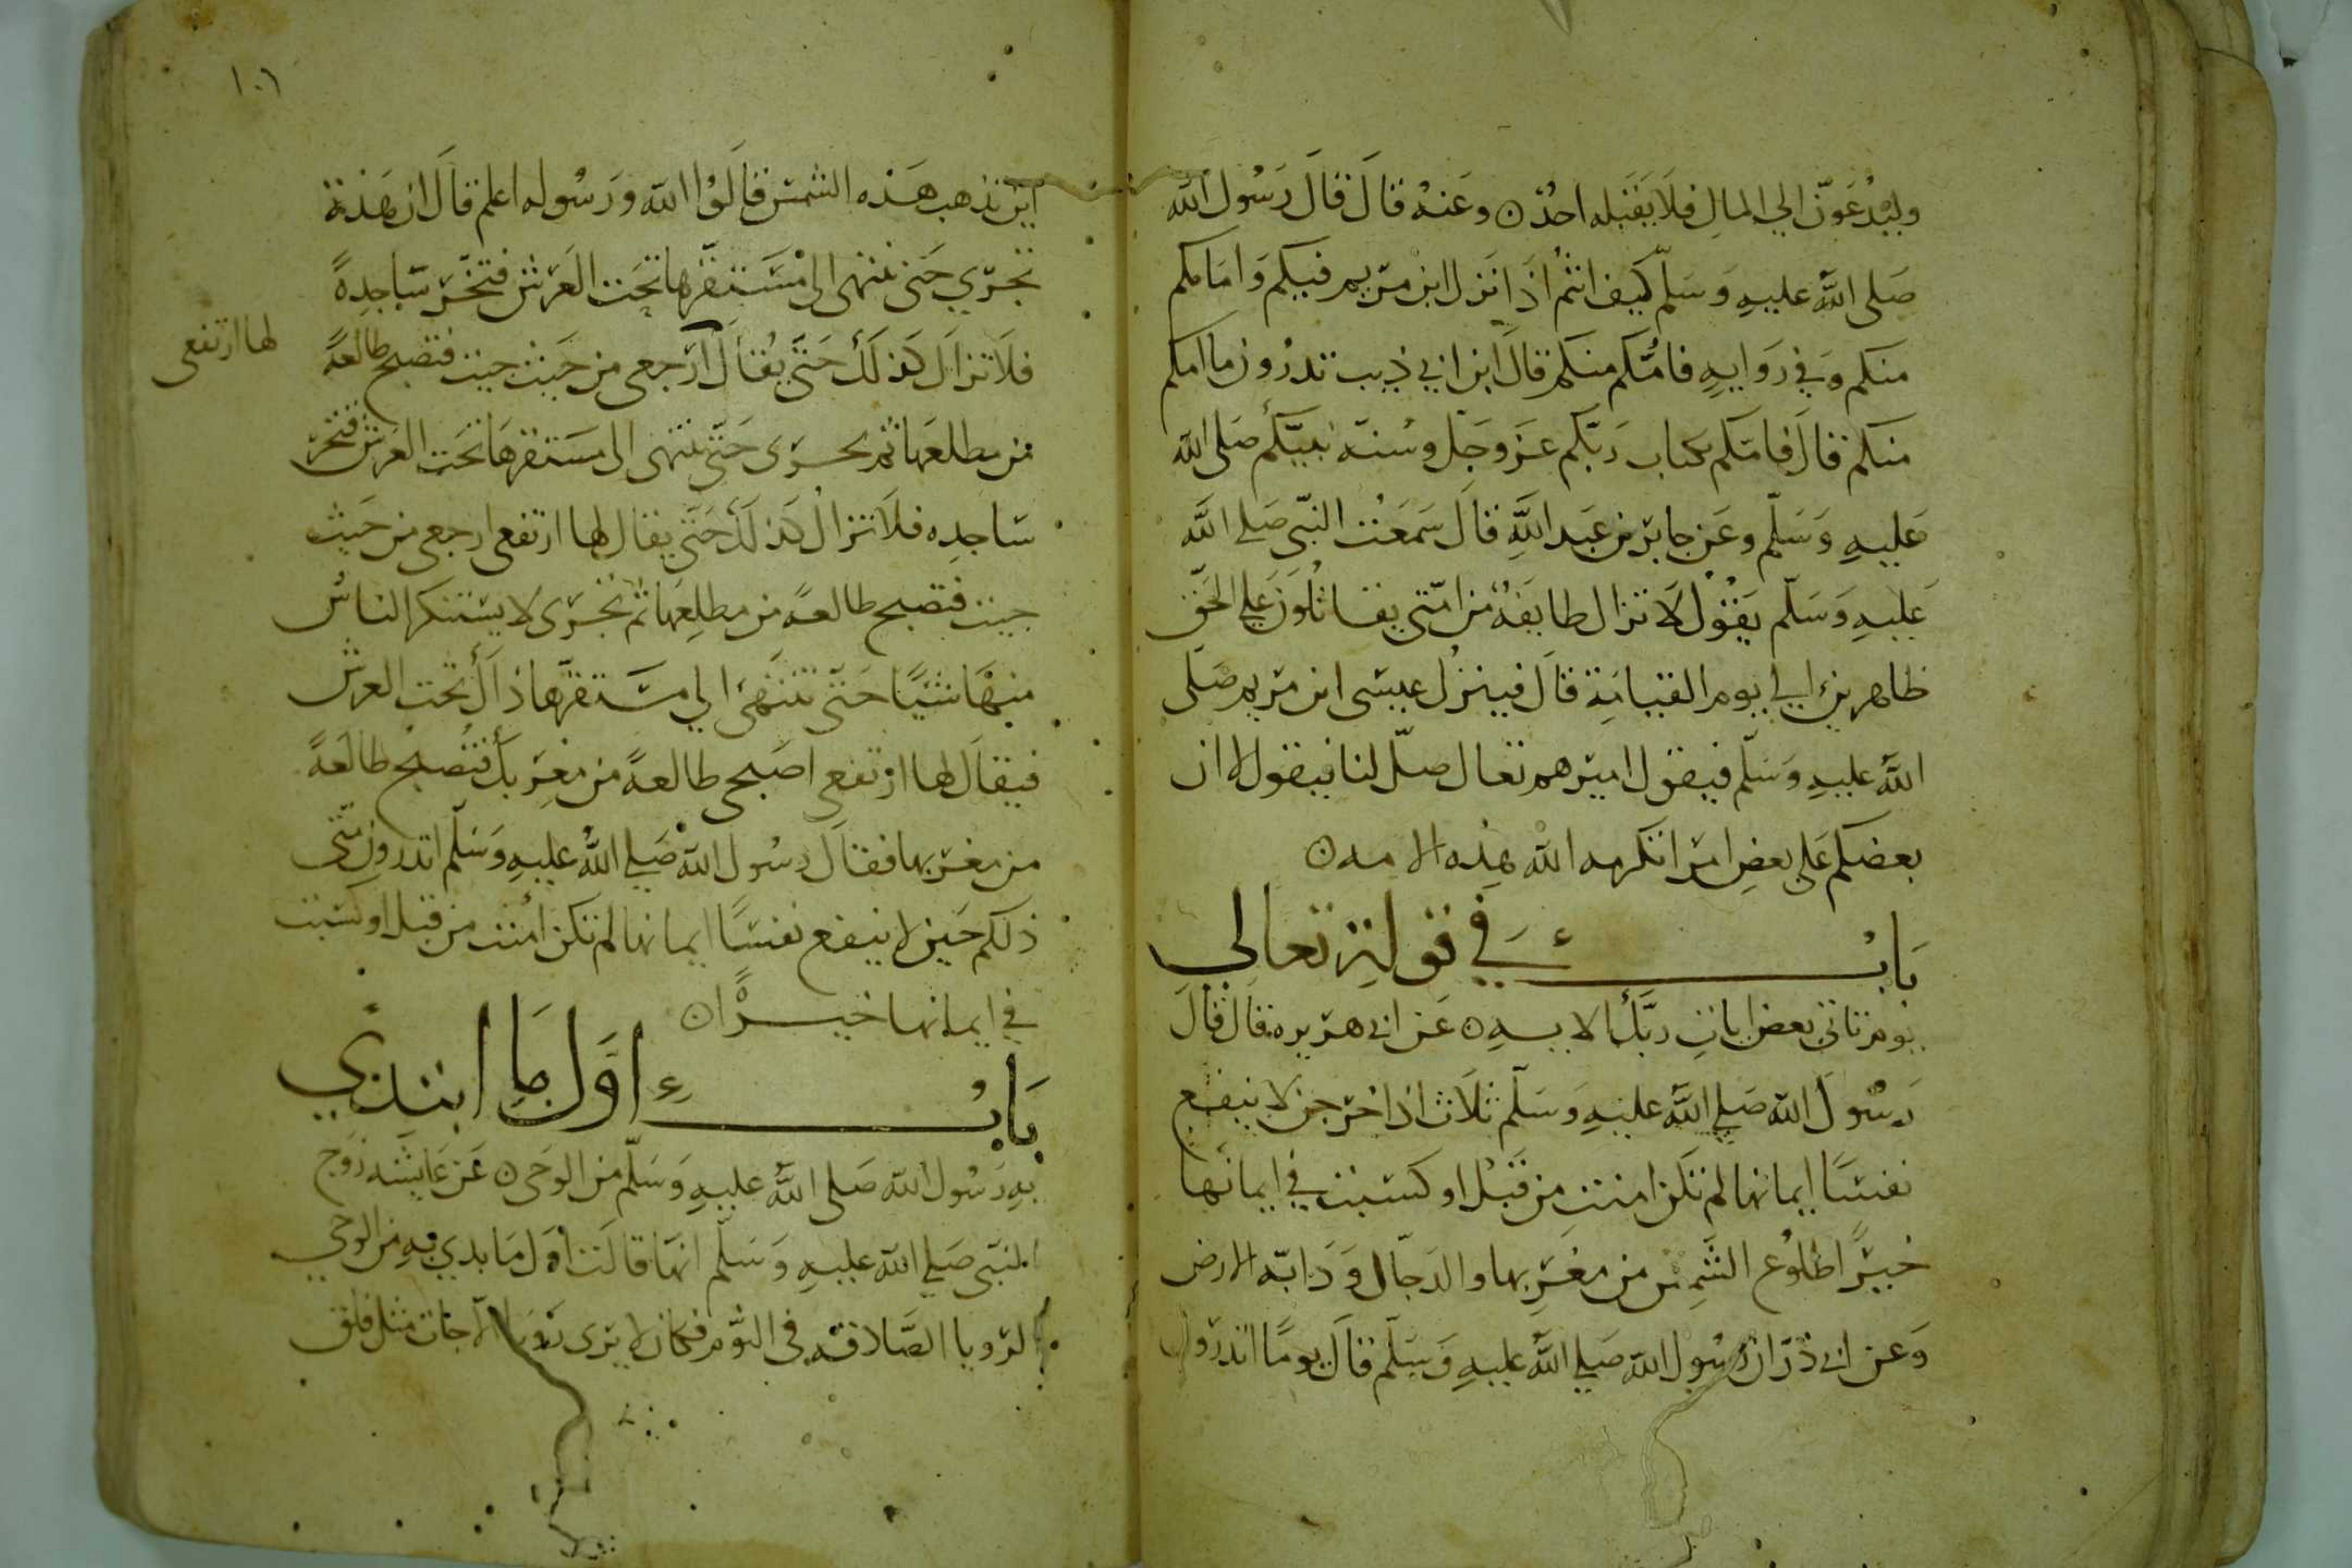 وليدعون الي المال فلا يقبله احد ن وعنه قال قال رسول الله
صلى الله عليه وسلم كيف انتم اذا نزل ابن مريم فيكم وامامكم
منكم وفي روايه فامكم منكم قال ابن ابي ذيب تدرون ما امكم
منكم قال فامكم بكتاب ربكم عز وجل وسنة نبيكم صلى الله
عليه وسلم وعن جابر بن عبد الله قال سمعت النبي صلى الله
عليه وسلم يقول لا تزال طايفة من امتي يقاتلون علي الحق
ظاهرين الي يوم القيامة قال فينزل عيسى ابن مريم صلى
الله عليه وسلم فيقول اميرهم تعال صل لنا فيقول لا ان
بعضكم علي بعض امرا تكرمه الله هذه الامه ن
باب في قوله تعالي
يوم تاتي بعض ايات ربك الايه ن عن ابي هريره قال قال
رسول الله صلي الله عليه وسلم ثلاث اذا خرجن لا ينفع
نفسا ايمانها لم تكن امنت من قبل او كسبت في ايمانها
خيرا طلوع الشمس من مغربها والدجال ودابه الارض
وعن ابي ذر ان رسول الله صلي الله عليه وسلم قال يوما اتدرون
١٠٦
اين تذهب هذه الشمس قالوا الله ورسوله اعلم قال ان هذة
تجري حتى تنتهى الى مستقرها تحت العرش فتخر ساجدة
فلا تزال كذلك حتى يقال ارجعي من حيث جيت فتصبح طالعة
لها ارتفعي
من مطلعها ثم تجرى حتى تنتهى الى مستقرها تحت العرش فتخر
ساجده فلا تزال كذلك حتى يقال لها ارتفعي ارجعي من حيث
جيت فتصبح طالعة من مطلعها ثم تجرى لا يستنكر الناس
منها شيا حتى تنتهى الي مستقرها ذاك تحت العرش
فيقال لها ارتفعي اصبحي طالعة من مغربك فتصبح طالعة
من مغربها فقال رسول الله صلي الله عليه وسلم اتدرون متى
ذلكم حين لا ينفع نفسا ايمانها لم تكن امنت من قبل او كسبت
في ايمانها خيرا ن
باب اول ما ابتدي
به رسول الله صلى الله عليه وسلم من الوحي ن عن عايشه زوج
النبي صلي الله عليه وسلم انها قالت اول ما بدي به من الوحي
الرويا الصادقه في النوم فكان لا يرى رويا الا جات مثل فلق